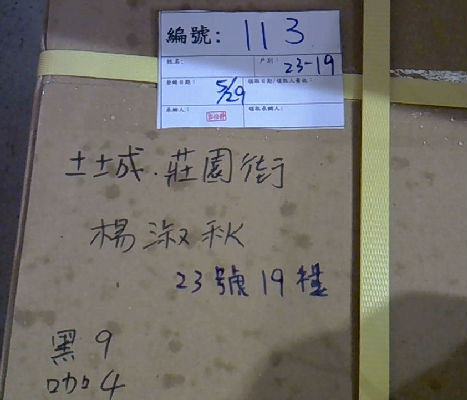 編號: 113
姓名: 戶別: 23-19
登錄日期: 5/29 領取日期/領取人簽收:
承辦人: 領取承辦人:
土城.莊園街
楊淑秋
23號19樓
黑9
咖4